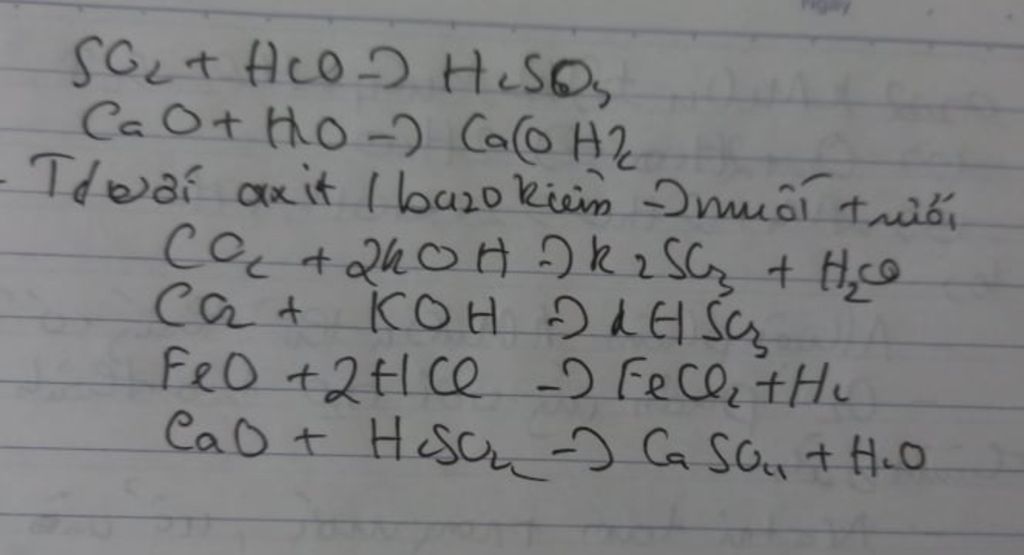 SO₂ + H₂O → H₂SO₃
CaO + H₂O → Ca(OH)₂
- Td với axit / bazo kiềm → muối + nước
CO₂ + 2KOH → K₂SO₃ + H₂O
CO₂ + KOH → KHSO₃
FeO + 2HCl → FeCl₂ + H₂
CaO + H₂SO₄ → CaSO₄ + H₂O